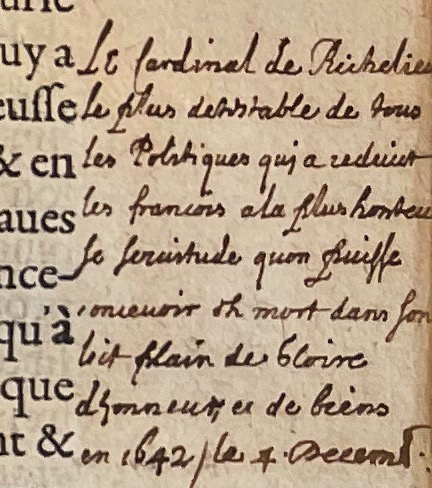 urie
uy a Le Cardinal de Richelieu
eusse le plus detestable de tous
& en les Politiques quj a reduict
aues les francois a la plus honteu
nce- se seruitude quon puisse
qu'à conceuoir est mort dans son
lict plain de Gloire
que d'honneur et de biens
nt & en 1642 / le 4. Decemb.